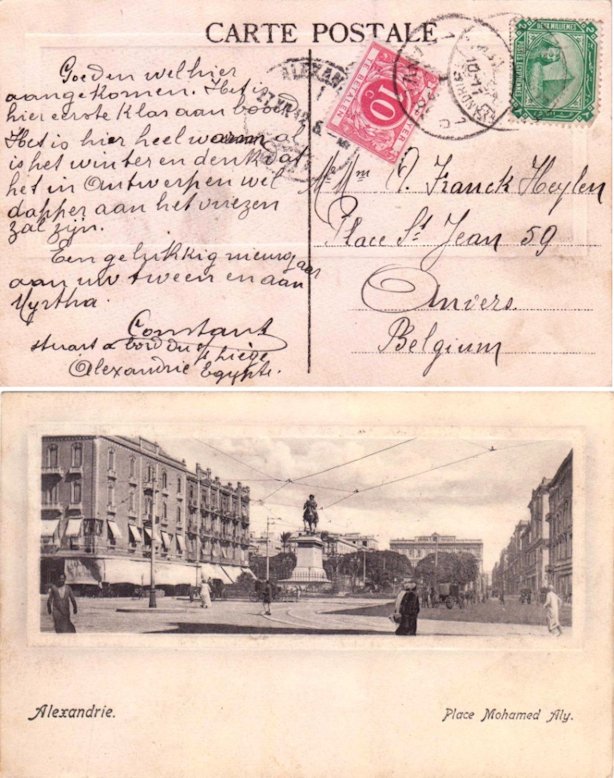 CARTE POSTALE
Goeden wel hier
aangekomen. Het is
hier eerste klas aan boord.
Het is hier heel warm al
is het winter en denk dat
het in Antwerpen wel
dapper aan het vriezen
zal zijn.
Een gelukkig nieuwjaar
aan uw tween en aan
Myrtha.
Constant
stuart a bord du s/s Liège
Alexandrie Egypte.
ALEXAN
TE BETALEN
10
2
DEUX MILLIEMES
POSTES EGYPTIENNES
Franck Heylen
Place St Jean 59
Anvers
Belgium
Alexandrie.
Place Mohamed Aly.